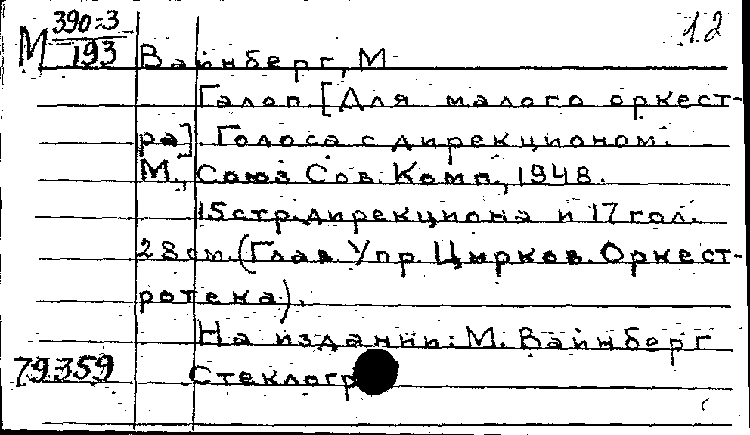 М 390-3/193
12
Вайнберг, М
Галоп. [Для малого оркест-
ра]. Голоса с дирекционом.
М., Союз Сов. Комп., 1948.
15 стр. дирекциона и 17 гол.
28 см. (Глав. Упр. Цирков. Оркест-
ротека).
На издании: М. Вайнберг
79359
Стеклогр